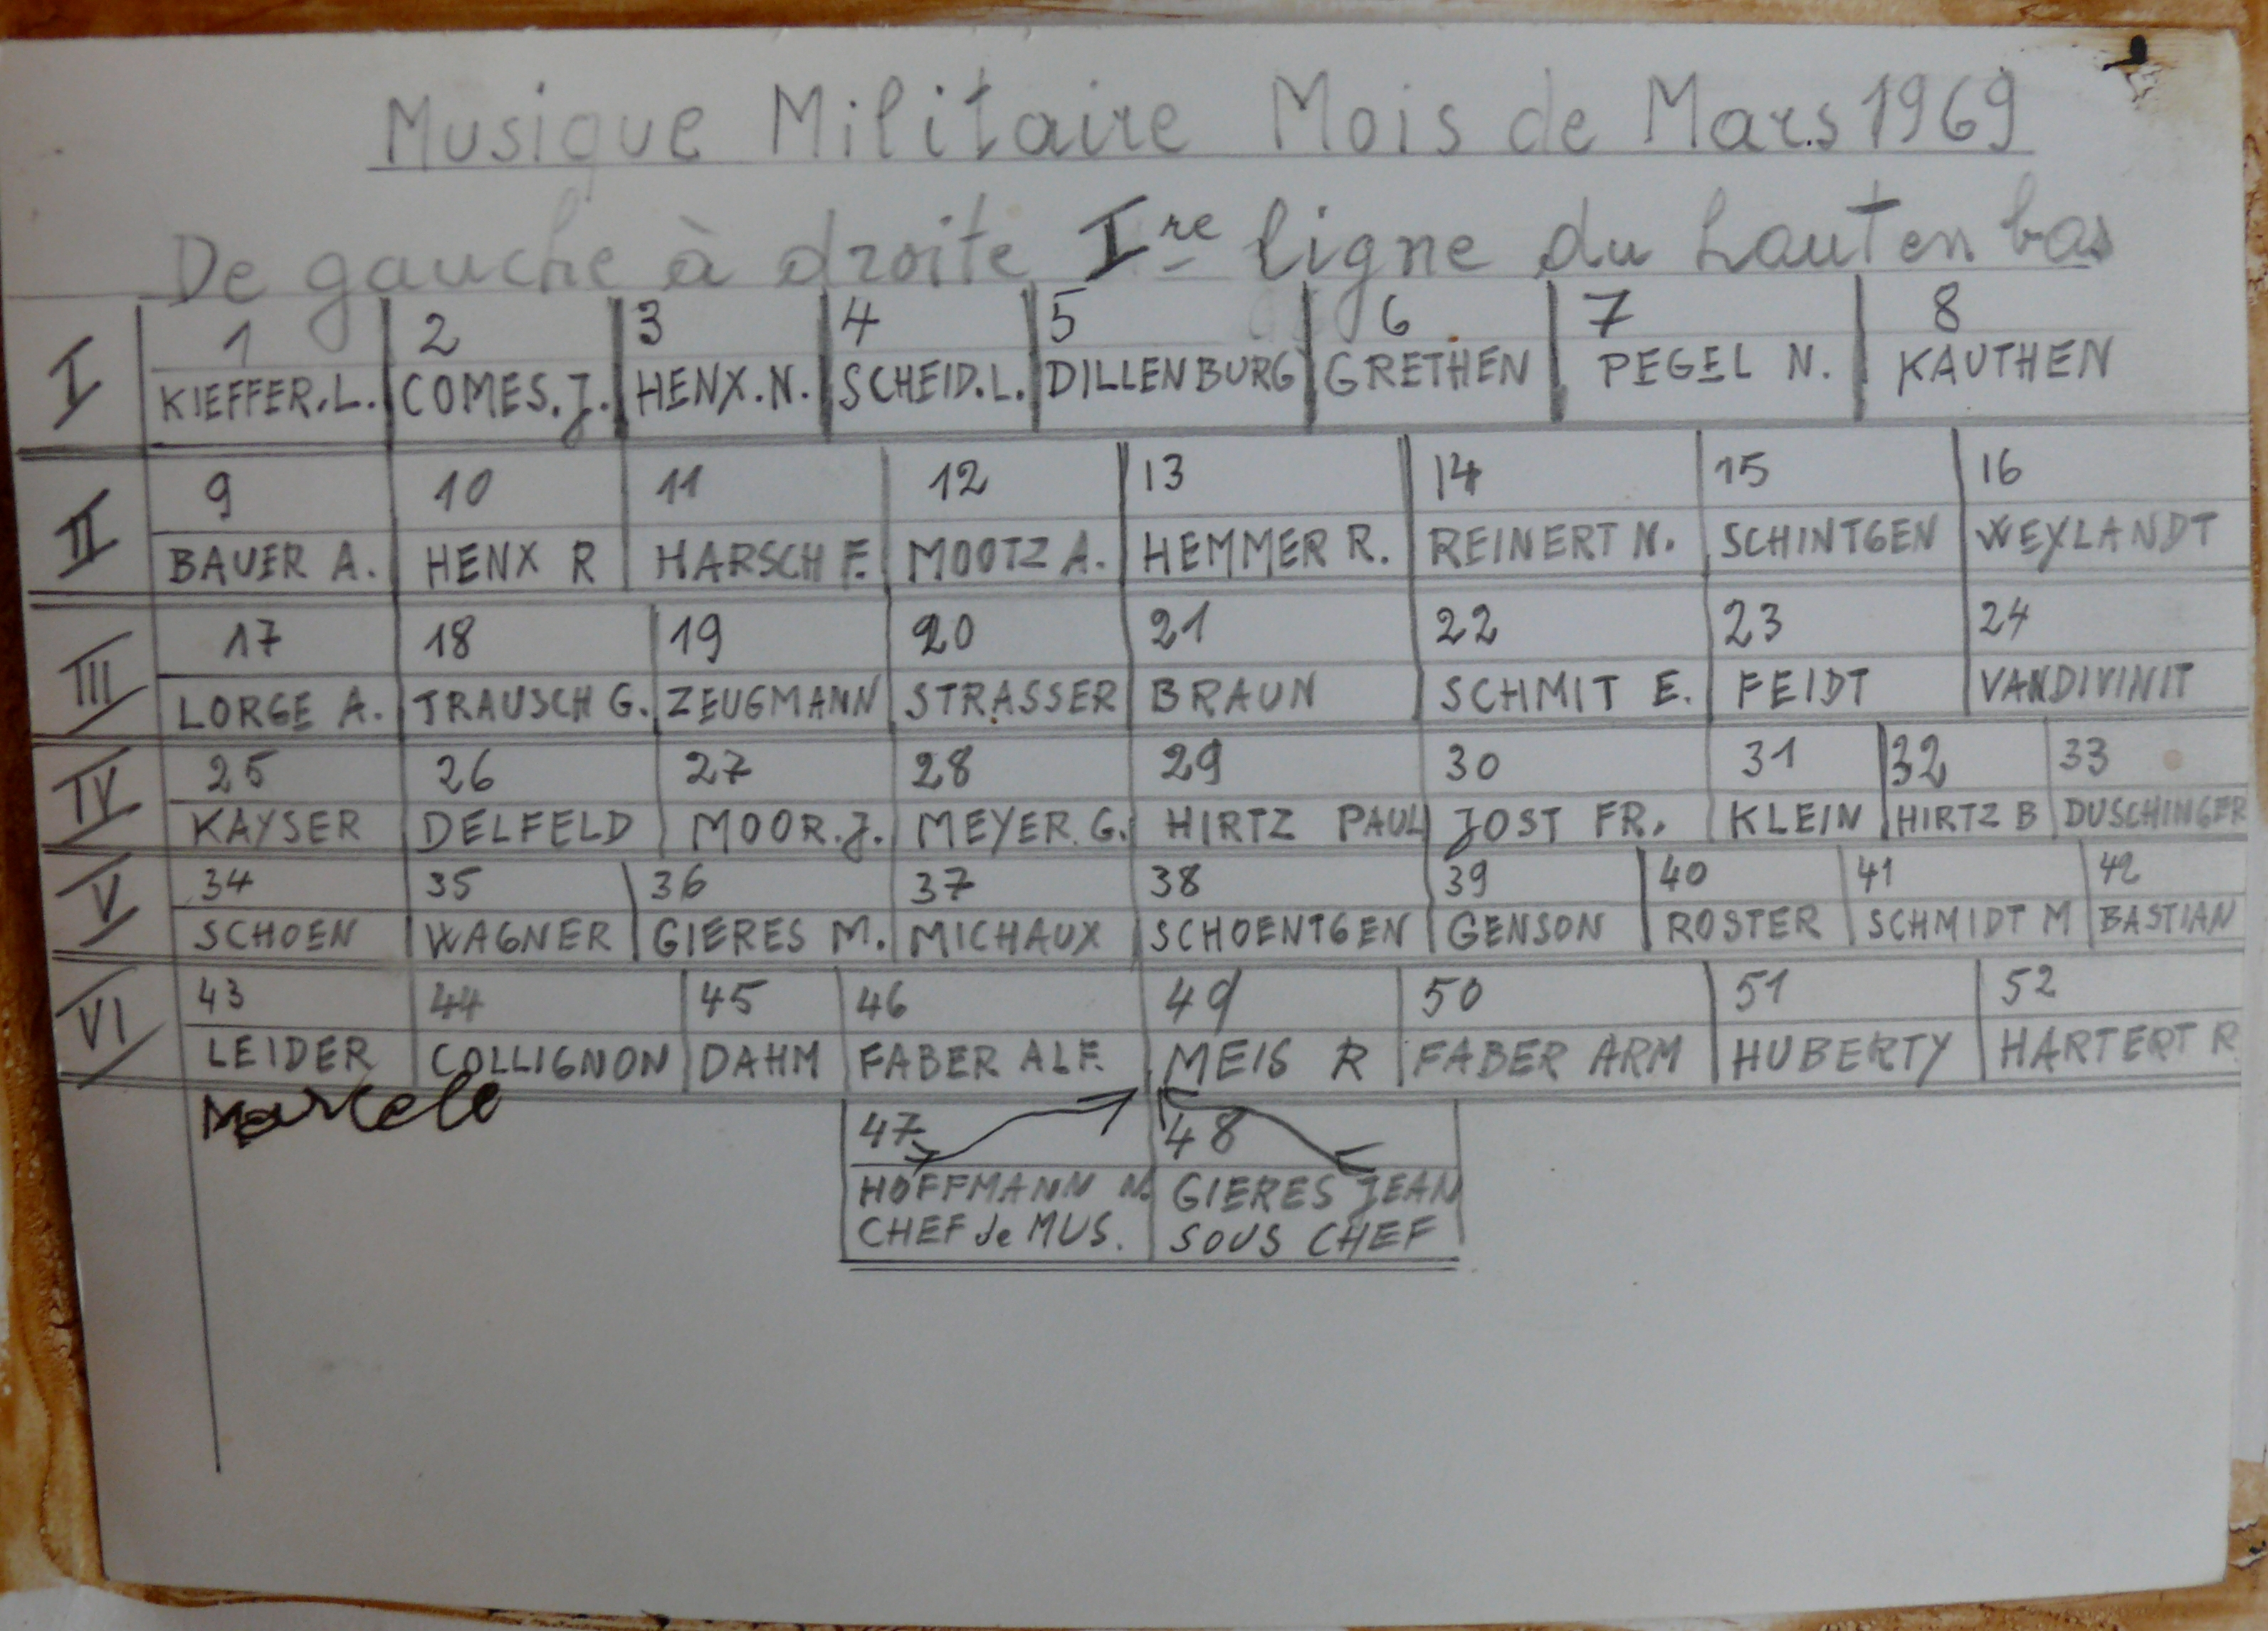 Musique Militaire Mois de Mars 1969
De gauche à droite Ire ligne du haut en bas
I 1 2 3 4 5 6 7 8
KIEFFER.L. COMES.J. HENX.N. SCHEID.L. DILLENBURG GRETHEN PEGEL N. KAUTHEN
II 9 10 11 12 13 14 15 16
BAUER A. HENX R HARSCH F. MOOTZ A. HEMMER R. REINERT N. SCHINTGEN WEYLANDT
III 17 18 19 20 21 22 23 24
LORGE A. TRAUSCH G. ZEUGMANN STRASSER BRAUN SCHMIT E. FEIDT VANDIVINIT
IV 25 26 27 28 29 30 31 32 33
KAYSER DELFELD MOOR.J. MEYER G. HIRTZ PAUL JOST FR. KLEIN HIRTZ B DUSCHINGER
V 34 35 36 37 38 39 40 41 42
SCHOEN WAGNER GIERES M. MICHAUX SCHOENTGEN GENSON ROSTER SCHMIDT M BASTIAN
VI 43 44 45 46 49 50 51 52
LEIDER COLLIGNON DAHM FABER ALF. MEIS R FABER ARM HUBERTY HARTERT R
47 48
HOFFMANN N. GIERES JEAN
CHEF de MUS. SOUS CHEF